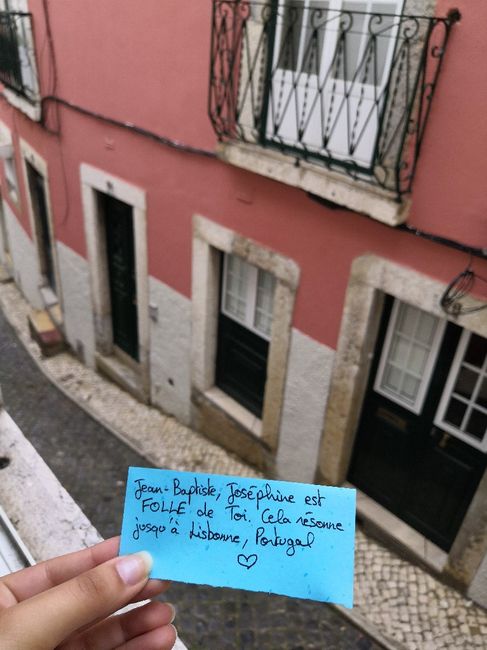 Jean-Baptiste, Joséphine est
FOLLE de Toi. Cela résonne
jusqu'à Lisbonne, Portugal
♡